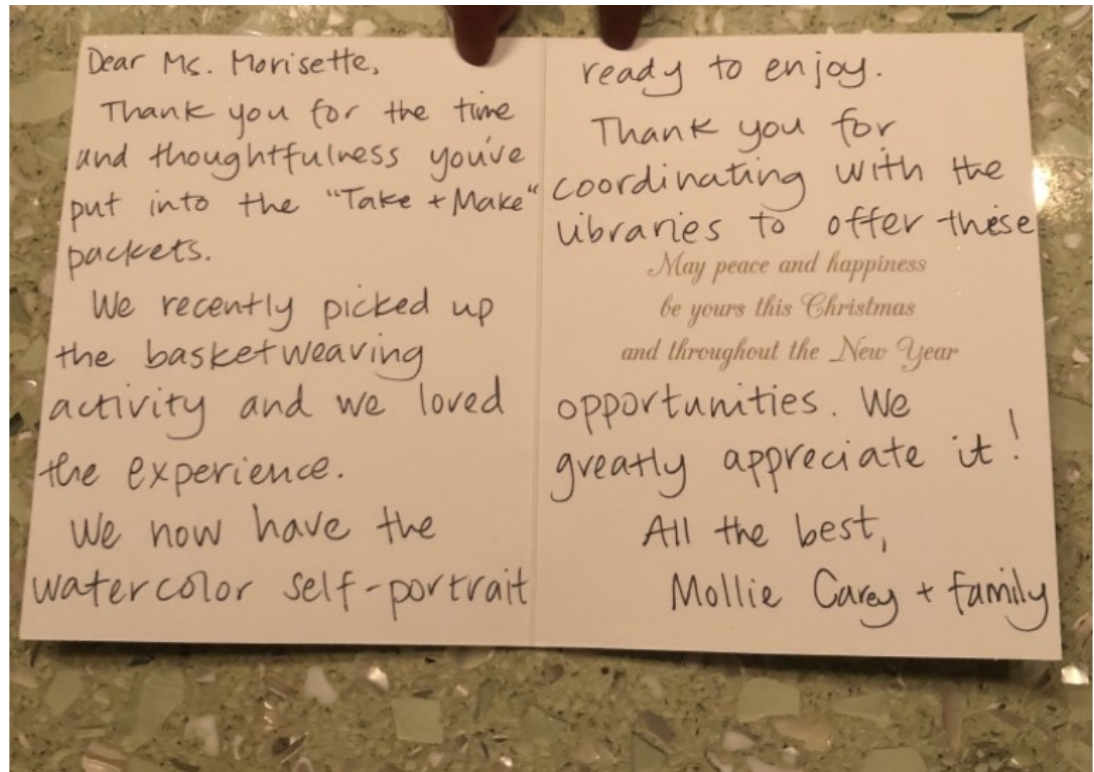 Dear Ms. Morisette,
Thank you for the time
and thoughtfulness you've
put into the "Take + Make"
packets.
We recently picked up
the basketweaving
activity and we loved
the experience.
We now have the
watercolor self-portrait
ready to enjoy.
Thank you for
coordinating with the
libraries to offer these
May peace and happiness
be yours this Christmas
and throughout the New Year
opportunities. We
greatly appreciate it!
All the best,
Mollie Carey + family